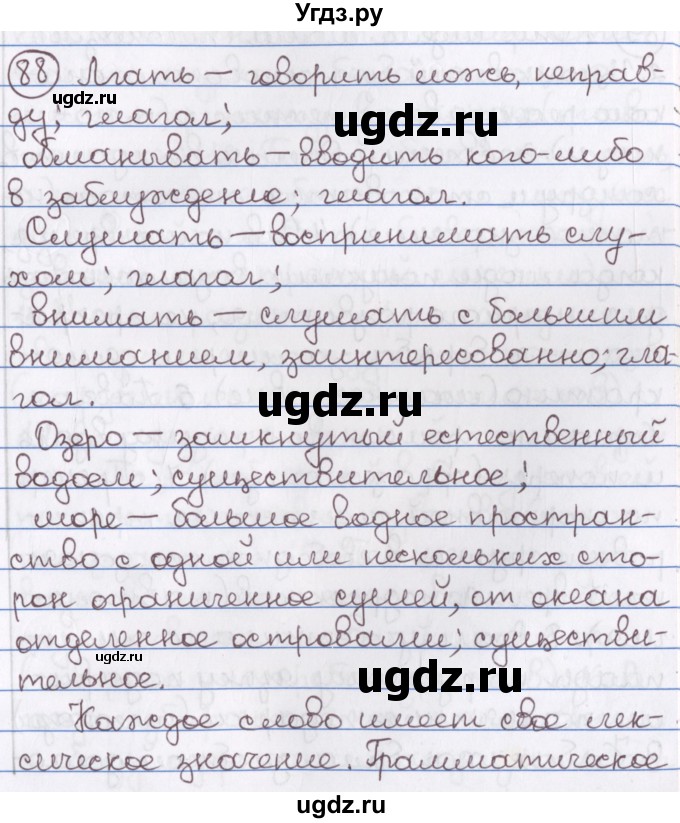 Угдз.ру
88 Лгать – говорить ложь, неправ-
ugdz.ru
ду; глагол;
ugdz.ru
обманывать – вводить кого-либо
в заблуждение; глагол.
Слушать – воспринимать слу-
хом; глагол;
внимать – слушать с большим
вниманием, заинтересованно; гла-
гол.
ugdz.ru
Озеро – замкнутый естественный
водоем; существительное;
море – большое водное простран-
ство с одной или нескольких сто-
рон ограниченное сушей, от океана
отделенное островами; существи-
ugdz.ru
тельное.
ugdz.ru
Каждое слово имеет свое лек-
сическое значение. Грамматическое
ugdz.ru